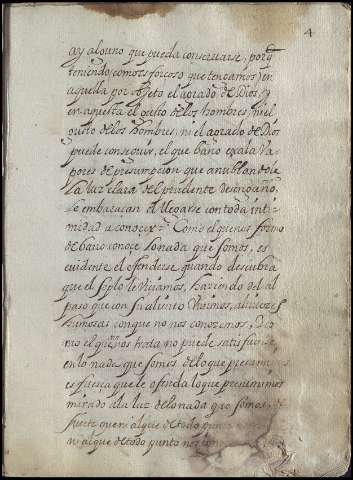 4
ay alguno que pueda conservarse, porq̃
teniendo, como es forçoso que tengamos, en
aquella por objeto el agrado de Dios, y
en aquesta el gusto de los hombres, ni el
gusto de los hombres, ni el agrado de Dios
puede conseguir, el que bano exala va
pores de presumpcion que anublandole
la luz clara del prudente desengaño
le embaraçan el llegarse con toda inti
midad a conocer. Como el que nos formo
de barro conoçe la nada que somos, es
evidente el ofenderse quando descubra
que el soplo le viciamos, haciendo del al
paso que con su aliento vivimos, altiveçes
humosas conque no nos conozcamos,
mo el que nos trata no puede satisfaçerse
en lo nada que somos de lo que presumimos
es fuerça que le ofenda lo que presumimos
mirado a la luz de lo nada que somos
suerte que ni al que de todo punto
ni al que de todo punto no